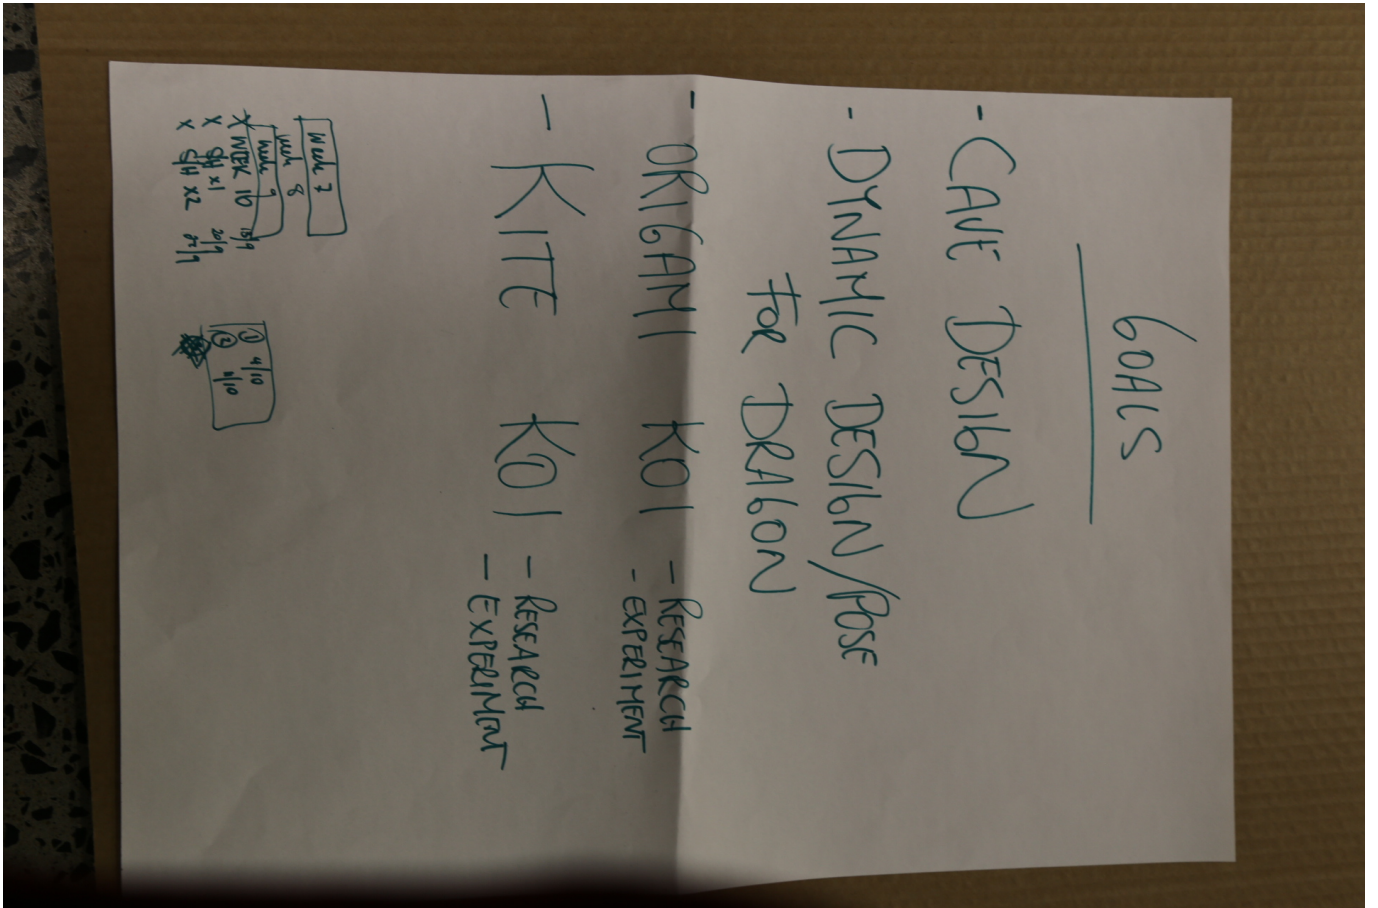 GOALS
- CAVE DESIGN
- DYNAMIC DESIGN/POSE
FOR DRAGON
- ORIGAMI KOI - RESEARCH
- EXPERIMENT
- KITE KOI - RESEARCH
- EXPERIMENT
Week 7
Week 8
Week 9
X WEEK 10 13/9
X S/H x1 20/9
X S/H x2 27/9
① 4/10
② 11/10